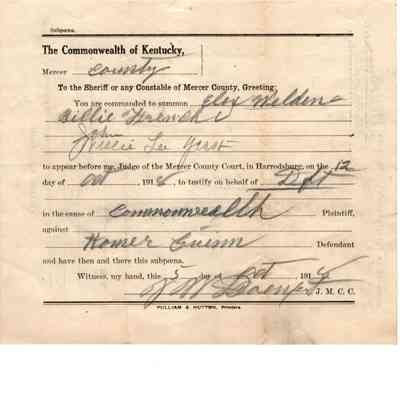 Subpœna.
The Commonwealth of Kentucky,
Mercer County
To the Sheriff or any Constable of Mercer County, Greeting:
You are commanded to summon
John
Willie Lee
to appear before me, Judge of the Mercer County Court, in Harrodsburg, on the 12
day of Oct 191, to testify on behalf of Deft
in the cause of Commonwealth Plaintiff,
against
Homer Defendant
and have then and there this subpœna.
Witness, my hand, this 5 day Oct 191
J. M. C. C.
PULLIAM & HUTTON, Printers